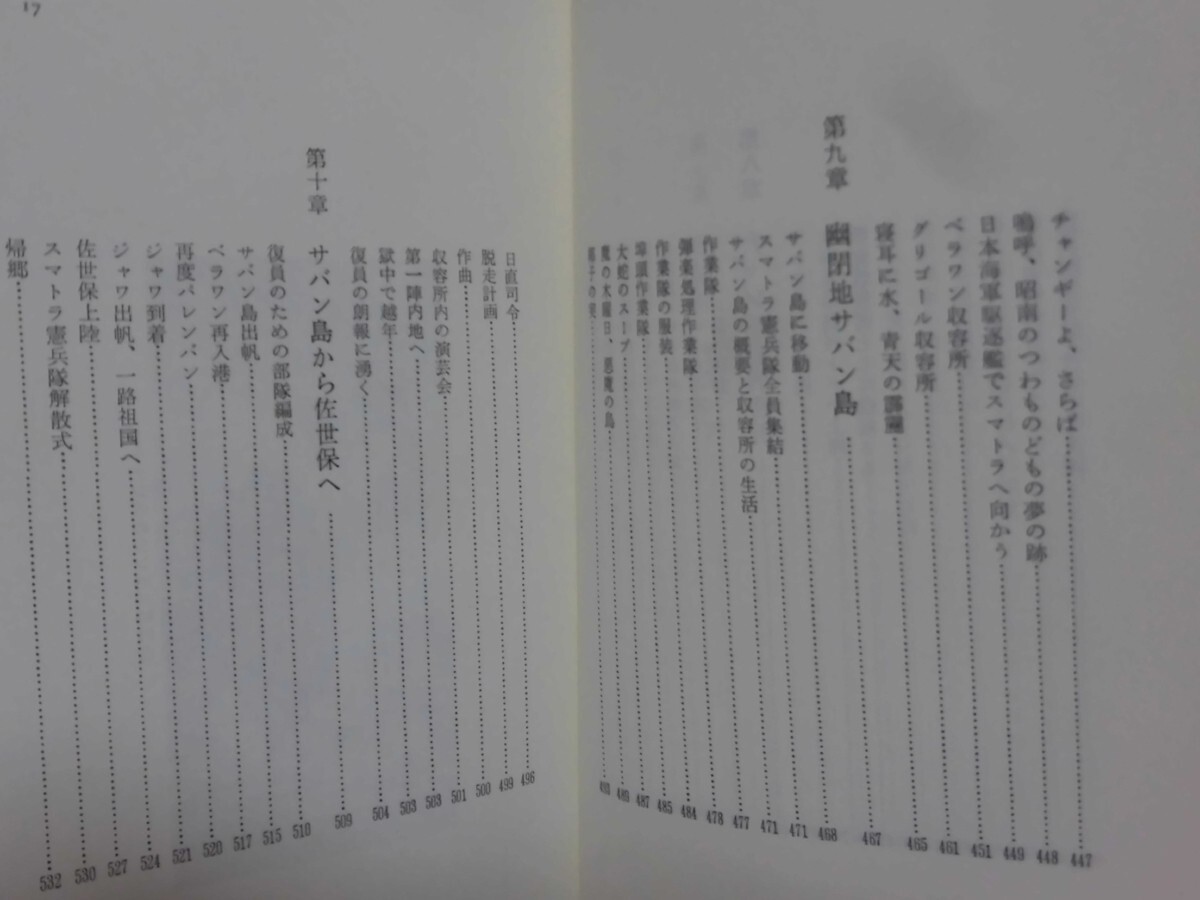 チャンギーよ、さらば……447
嗚呼、昭南のつわものどもの夢の跡……448
日本海軍駆逐艦でスマトラへ向かう……449
ベラワン収容所……451
グリゴール収容所……461
寝耳に水、青天の霹靂……465
第九章 幽閉地サバン島……467
サバン島に移動……468
スマトラ憲兵隊全員集結……471
サバン島の概要と収容所の生活……471
作業隊……477
弾薬処理作業隊……478
作業隊の服装……484
埠頭作業隊……485
大蛇のスープ……487
魔の木曜日、悪魔の島……489
椰子の実……493
日直司令……496
脱走計画……499
作曲……500
収容所内の演芸会……501
第一陣内地へ……503
獄中で越年……503
復員の朗報に湧く……504
第十章 サバン島から佐世保へ……509
復員のための部隊編成……510
サバン島出帆……515
ベラワン再入港……517
再度パレンバン……520
ジャワ到着……521
ジャワ出帆、一路祖国へ……524
佐世保上陸……527
スマトラ憲兵隊解散式……530
帰郷……532
17